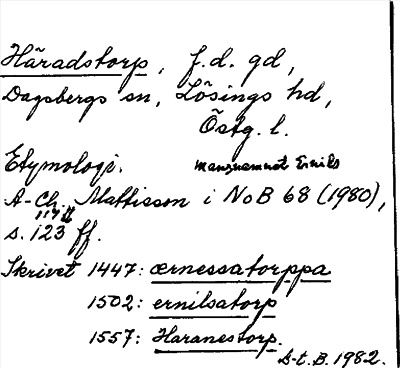 Häradstorp, f.d. gd,
Dagsbergs sn, Lösings hd,
Östg. l.
Etymologi. mansnamnet
A-Ch. Mattisson i NoB 68 (1980),
s. 123 ff.
Skrivet 1447: ærnessatorppa
1502: ernilsatorp
1557: Haranestorp.
S-t. B. 1982.